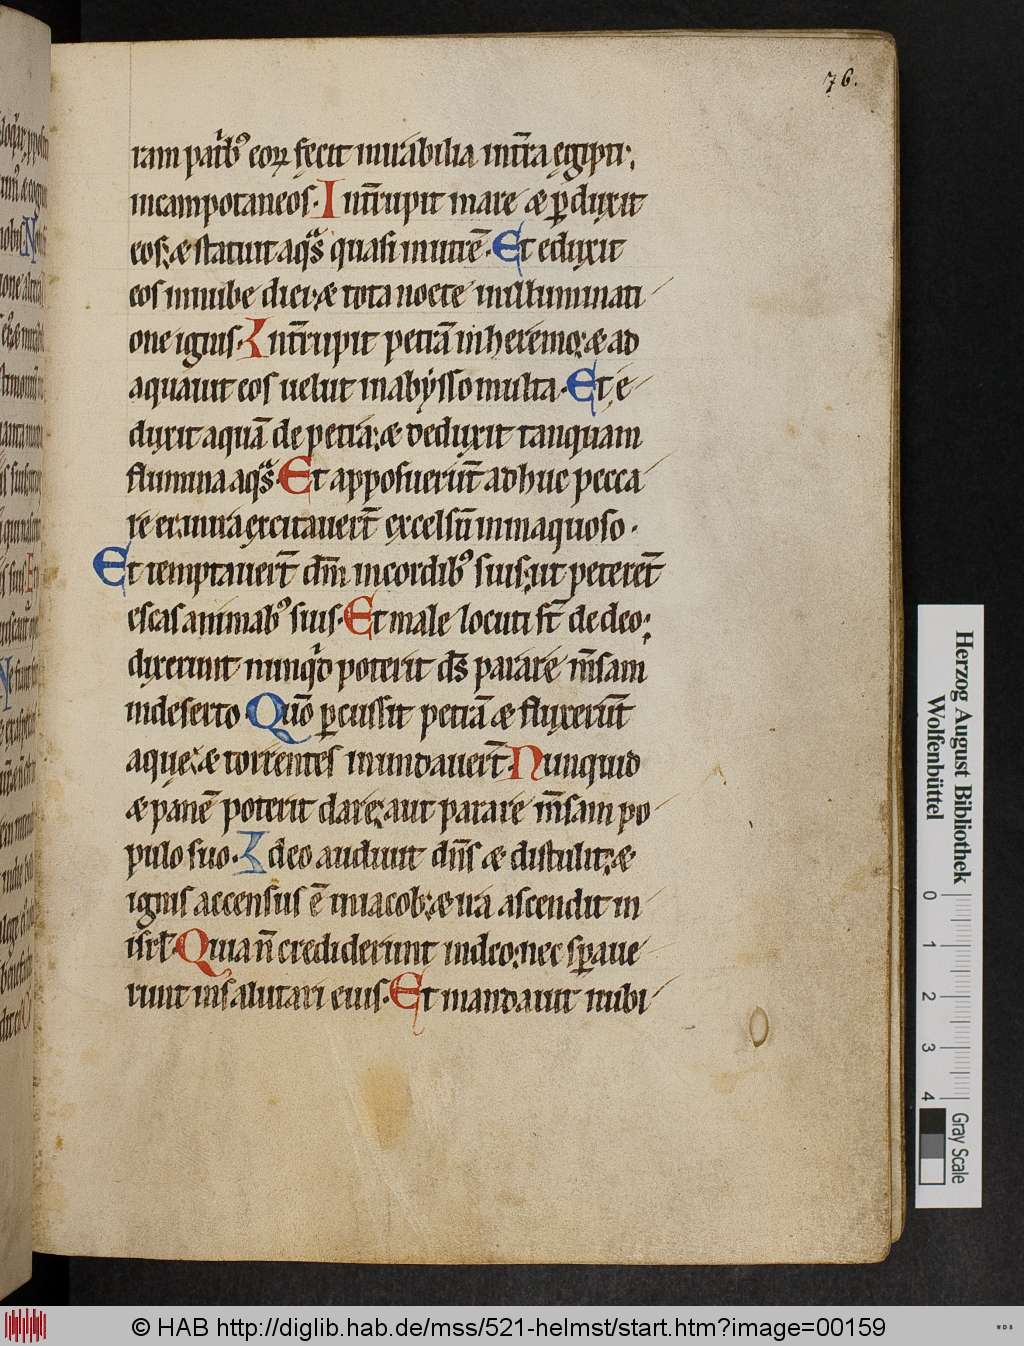 76.
ram patribꝯ eoꝝ fecit mirabilia int̄ra egipti;
incampotaneos. Int̄rupit mare & ꝑduxit
eos; & statuit aqͣs quasi inutrē. Et eduxit
eos innube diei; & tota nocte inilluminati
one ignis. Int̄rupit petrā inheremo; & ad
aquauit eos uelut inabysso multa. Et e
duxit aquā de petra; & deduxit tanquam
flumina aqͣs. Et apposuerūt adhuc pecca
re ei; inira excitauert̄ excelsū ininaquoso.
Et temptauert̄ dm̄ incordibꝯ suis; ut peterent̄
escas animabꝯ suis. Et male locuti st̄ de deo;
dixerunt nunqͥd poterit ds̄ parare m̄sam
indeserto. Qm̄o ꝑcussit petrā & fluxerūt
aque; & torrentes inundauert̄. Nunquid
& panē poterit dare; aut parare m̄sam po
pulo suo. Ideo audiuit dn̄s & distulit; &
ignis accensus ē iniacob; & ira ascendit in
isrl̄. Quia n̄ crediderunt indeo; nec sꝑaue
runt insalutari eius. Et mandauit nubi
Herzog August Bibliothek
Wolfenbüttel
0 1 2 3 4
Gray Scale
© HAB http://diglib.hab.de/mss/521-helmst/start.htm?image=00159